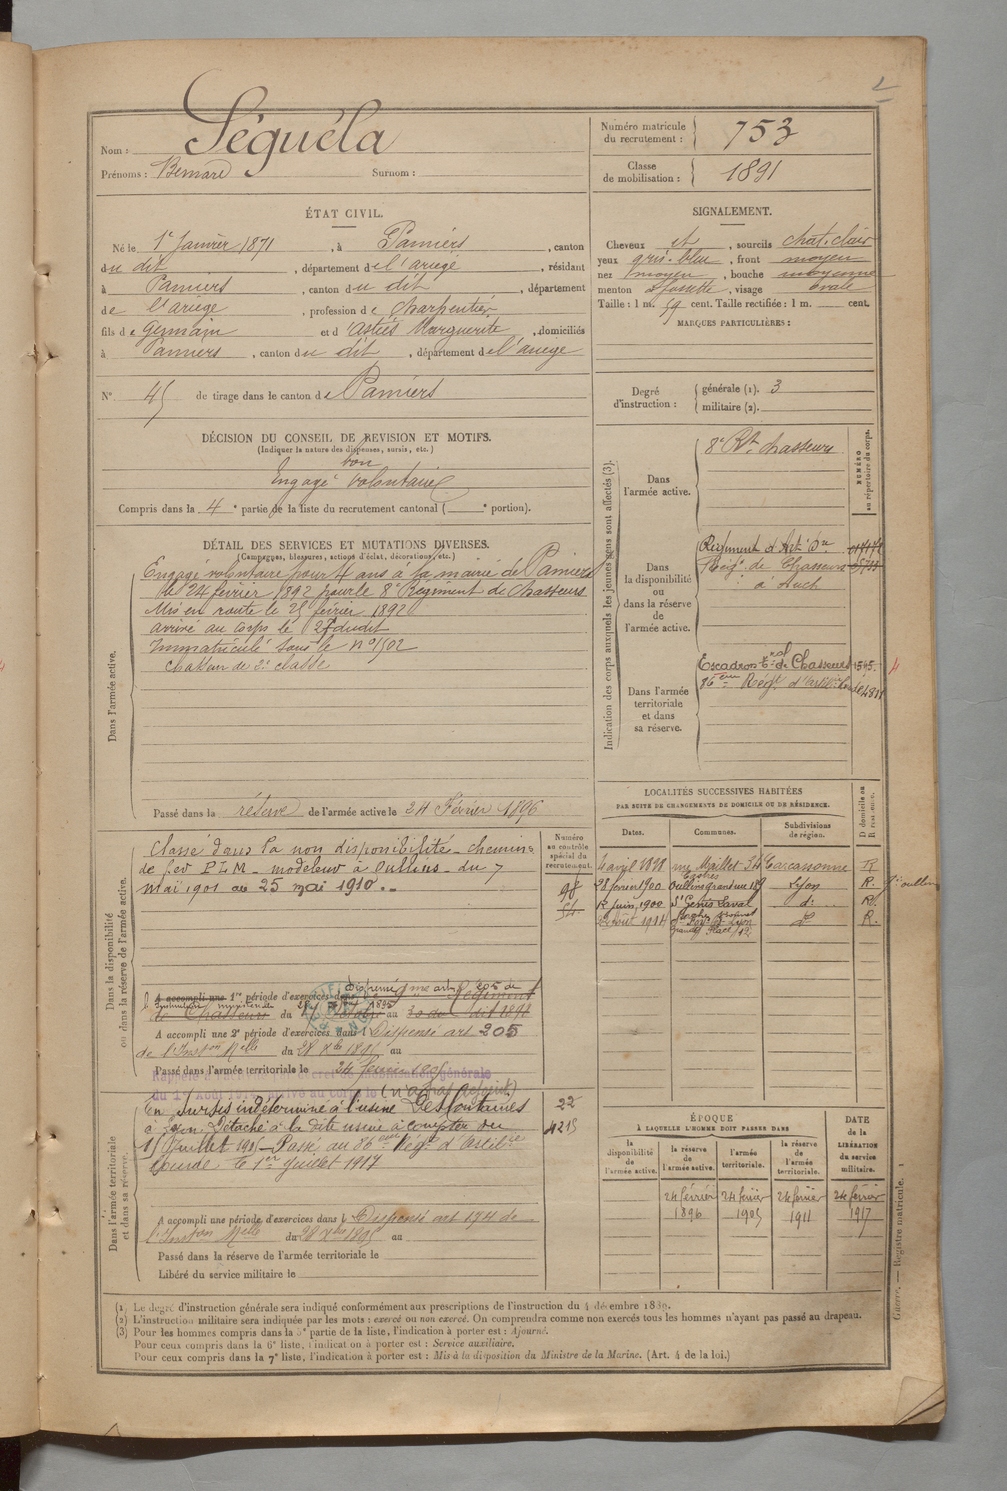 Séguéla
Nom :
Prénoms : Bernard Surnom :
Numéro matricule du recrutement : 753
Classe de mobilisation : 1891
ÉTAT CIVIL.
Né le 1er Janvier 1871, à Pamiers, canton
du dit, département de l'ariège, résidant
à Pamiers, canton du dit, département
de l'ariège, profession de Charpentier
fils de Germain et d'Astiès Marguerite, domiciliés
à Pamiers, canton du dit, département de l'ariège
N° 45 de tirage dans le canton de Pamiers
SIGNALEMENT.
Cheveux et, sourcils chat. clair
yeux gris-bleu, front moyen
nez moyen, bouche moyenne
menton à fossette, visage ovale
Taille : 1 m. 59 cent. Taille rectifiée : 1 m. cent.
MARQUES PARTICULIÈRES :
Degré d'instruction : générale (1). 3
militaire (2).
DÉCISION DU CONSEIL DE REVISION ET MOTIFS.
(Indiquer la nature des dispenses, sursis, etc.)
bon
Engagé volontaire
Compris dans la 4e partie de la liste du recrutement cantonal ( e portion).
DÉTAIL DES SERVICES ET MUTATIONS DIVERSES.
(Campagnes, blessures, actions d'éclat, décorations, etc.)
Dans l'armée active.
Engagé volontaire pour 4 ans à la mairie de Pamiers
le 24 février 1892 pour le 8e Régiment de chasseurs
Mis en route le 25 février 1892
arrivé au corps le 27 dudit
Immatriculé sous le n° 1502
chasseur de 2e classe
Passé dans la réserve de l'armée active le 24 Février 1896
Indication des corps auxquels les jeunes gens sont affectés (3).
NUMÉRO au répertoire du corps.
Dans l'armée active.
8e Rt. chasseurs
Dans la disponibilité ou dans la réserve de l'armée active.
Régiment d'Art
Rég. de Chasseurs
à Auch
Dans l'armée territoriale et dans sa réserve.
Escadron tal de Chasseurs 1545.
86ème Régt d'artillie Lourde
LOCALITÉS SUCCESSIVES HABITÉES
PAR SUITE DE CHANGEMENTS DE DOMICILE OU DE RÉSIDENCE.
Dates. Communes. Subdivisions de région. D domicile ou R résidence.
Castres Carcassonne R
28 février 1900 Oullins grande rue Lyon R.
12 juin 1900 St Genis Laval do R.
22 Août 1914 Grande Place 12 do R.
Dans la disponibilité ou dans la réserve de l'armée active.
Numéro au contrôle spécial du recrutement.
Classé dans la non disponibilité - chemins
de fer PLM - modeleur à Oullins - du 7
mai 1901 au 25 mai 1910.
98
54
A accompli une 1re période d'exercices dans Régiment
de Chasseurs du au
A accompli une 2e période d'exercices dans l Dispensé art 205
de l'Inston Melle du 28 Xbre 1895 au
Passé dans l'armée territoriale le 24 février 1905
Dans l'armée territoriale et dans sa réserve.
En sursis indéterminé à l'usine Desfontaines
à Lyon. Détaché à la dite usine à compter du
1er Juillet 1915 - Passé au 86ème Régt d'Artilrie
Lourde le 1er Juillet 1917
22
4215
A accompli une période d'exercices dans l Dispensé art 194 de
l'Inston Melle du 28 Xbre 1895 au
Passé dans la réserve de l'armée territoriale le
Libéré du service militaire le
ÉPOQUE
À LAQUELLE L'HOMME DOIT PASSER DANS
DATE de la LIBÉRATION du service militaire.
la disponibilité de l'armée active. la réserve de l'armée active. l'armée territoriale. la réserve de l'armée territoriale.
24 février 1896 24 février 1905 24 février 1911 24 février 1917
Guerre. — Registre matricule. 1
(1) Le degré d'instruction générale sera indiqué conformément aux prescriptions de l'instruction du 4 décembre 1889.
(2) L'instruction militaire sera indiquée par les mots : exercé ou non exercé. On comprendra comme non exercés tous les hommes n'ayant pas passé au drapeau.
(3) Pour les hommes compris dans la 5e partie de la liste, l'indication à porter est : Ajourné.
Pour ceux compris dans la 6e liste, l'indication à porter est : Service auxiliaire.
Pour ceux compris dans la 7e liste, l'indication à porter est : Mis à la disposition du Ministre de la Marine. (Art. 4 de la loi.)